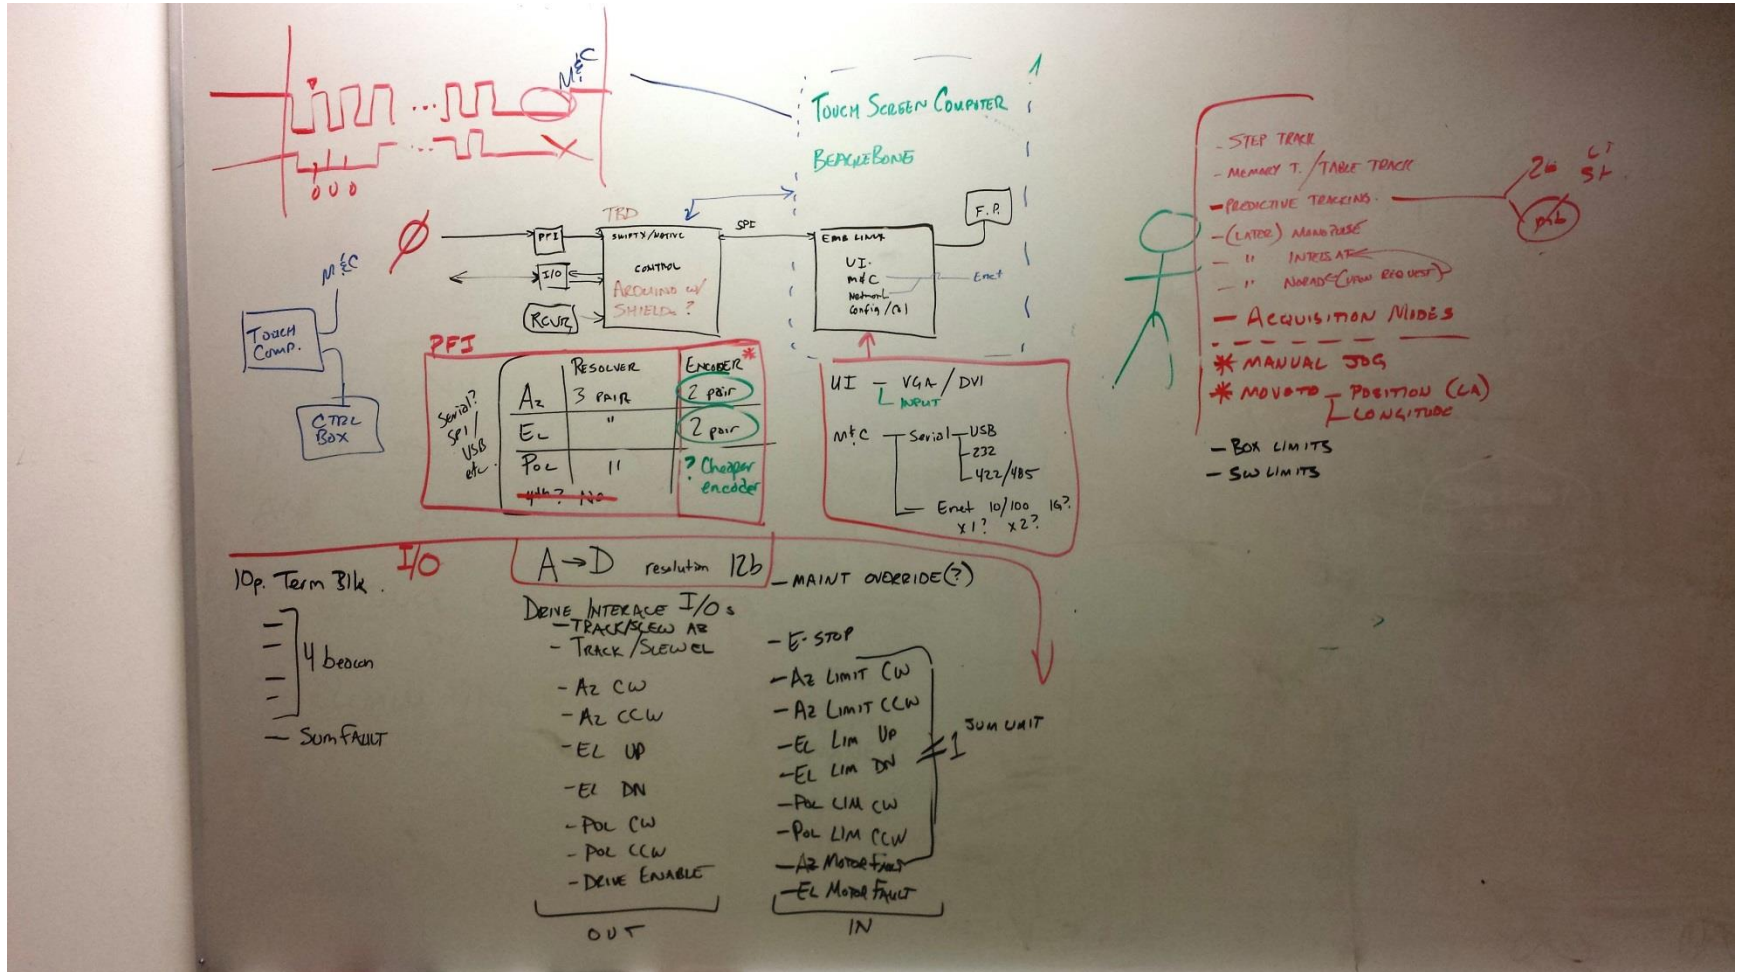 M&C
0 0 0
TOUCH SCREEN COMPUTER
BEAGLEBONE
TBD
PFI
I/O
RCVR
CONTROL
ARDUINO W/
SHIELDS?
SPI
EMB LINUX
UI
M&C
Network
Config/
Enet
F.P.
M&C
TOUCH
COMP.
CTRL
BOX
PFI
Serial?
SPI/
USB
etc.
RESOLVER
ENCODER*
AZ 3 PAIR 2 pair
EL " 2 pair
POL " ? Cheaper
encoder
4th? No
UI - VGA/DVI
INPUT
M&C Serial USB
232
422/485
Enet 10/100 1G?
x1? x2?
- STEP TRACK
- MEMORY T./TABLE TRACK
- PREDICTIVE TRACKING
- (LATER) MONOPULSE
- " INTELSAT
- " NORAD (UPON REQUEST)
- ACQUISITION MODES
* MANUAL JOG
* MOVETO - POSITION (LA)
LONGITUDE
- BOX LIMITS
- SW LIMITS
I/O
10p. Term Blk.
4 beacon
- SUM FAULT
A → D resolution 12b
DRIVE INTERACE I/Os
- TRACK/SLEW AZ
- TRACK/SLEW EL
- AZ CW
- AZ CCW
- EL UP
- EL DN
- POL CW
- POL CCW
- DRIVE ENABLE
OUT
- MAINT OVERRIDE(?)
- E-STOP
- AZ LIMIT CW
- AZ LIMIT CCW
- EL LIM UP
- EL LIM DN
- POL LIM CW
- POL LIM CCW
- AZ MOTOR FAULT
- EL MOTOR FAULT
IN
1 SUM LIMIT